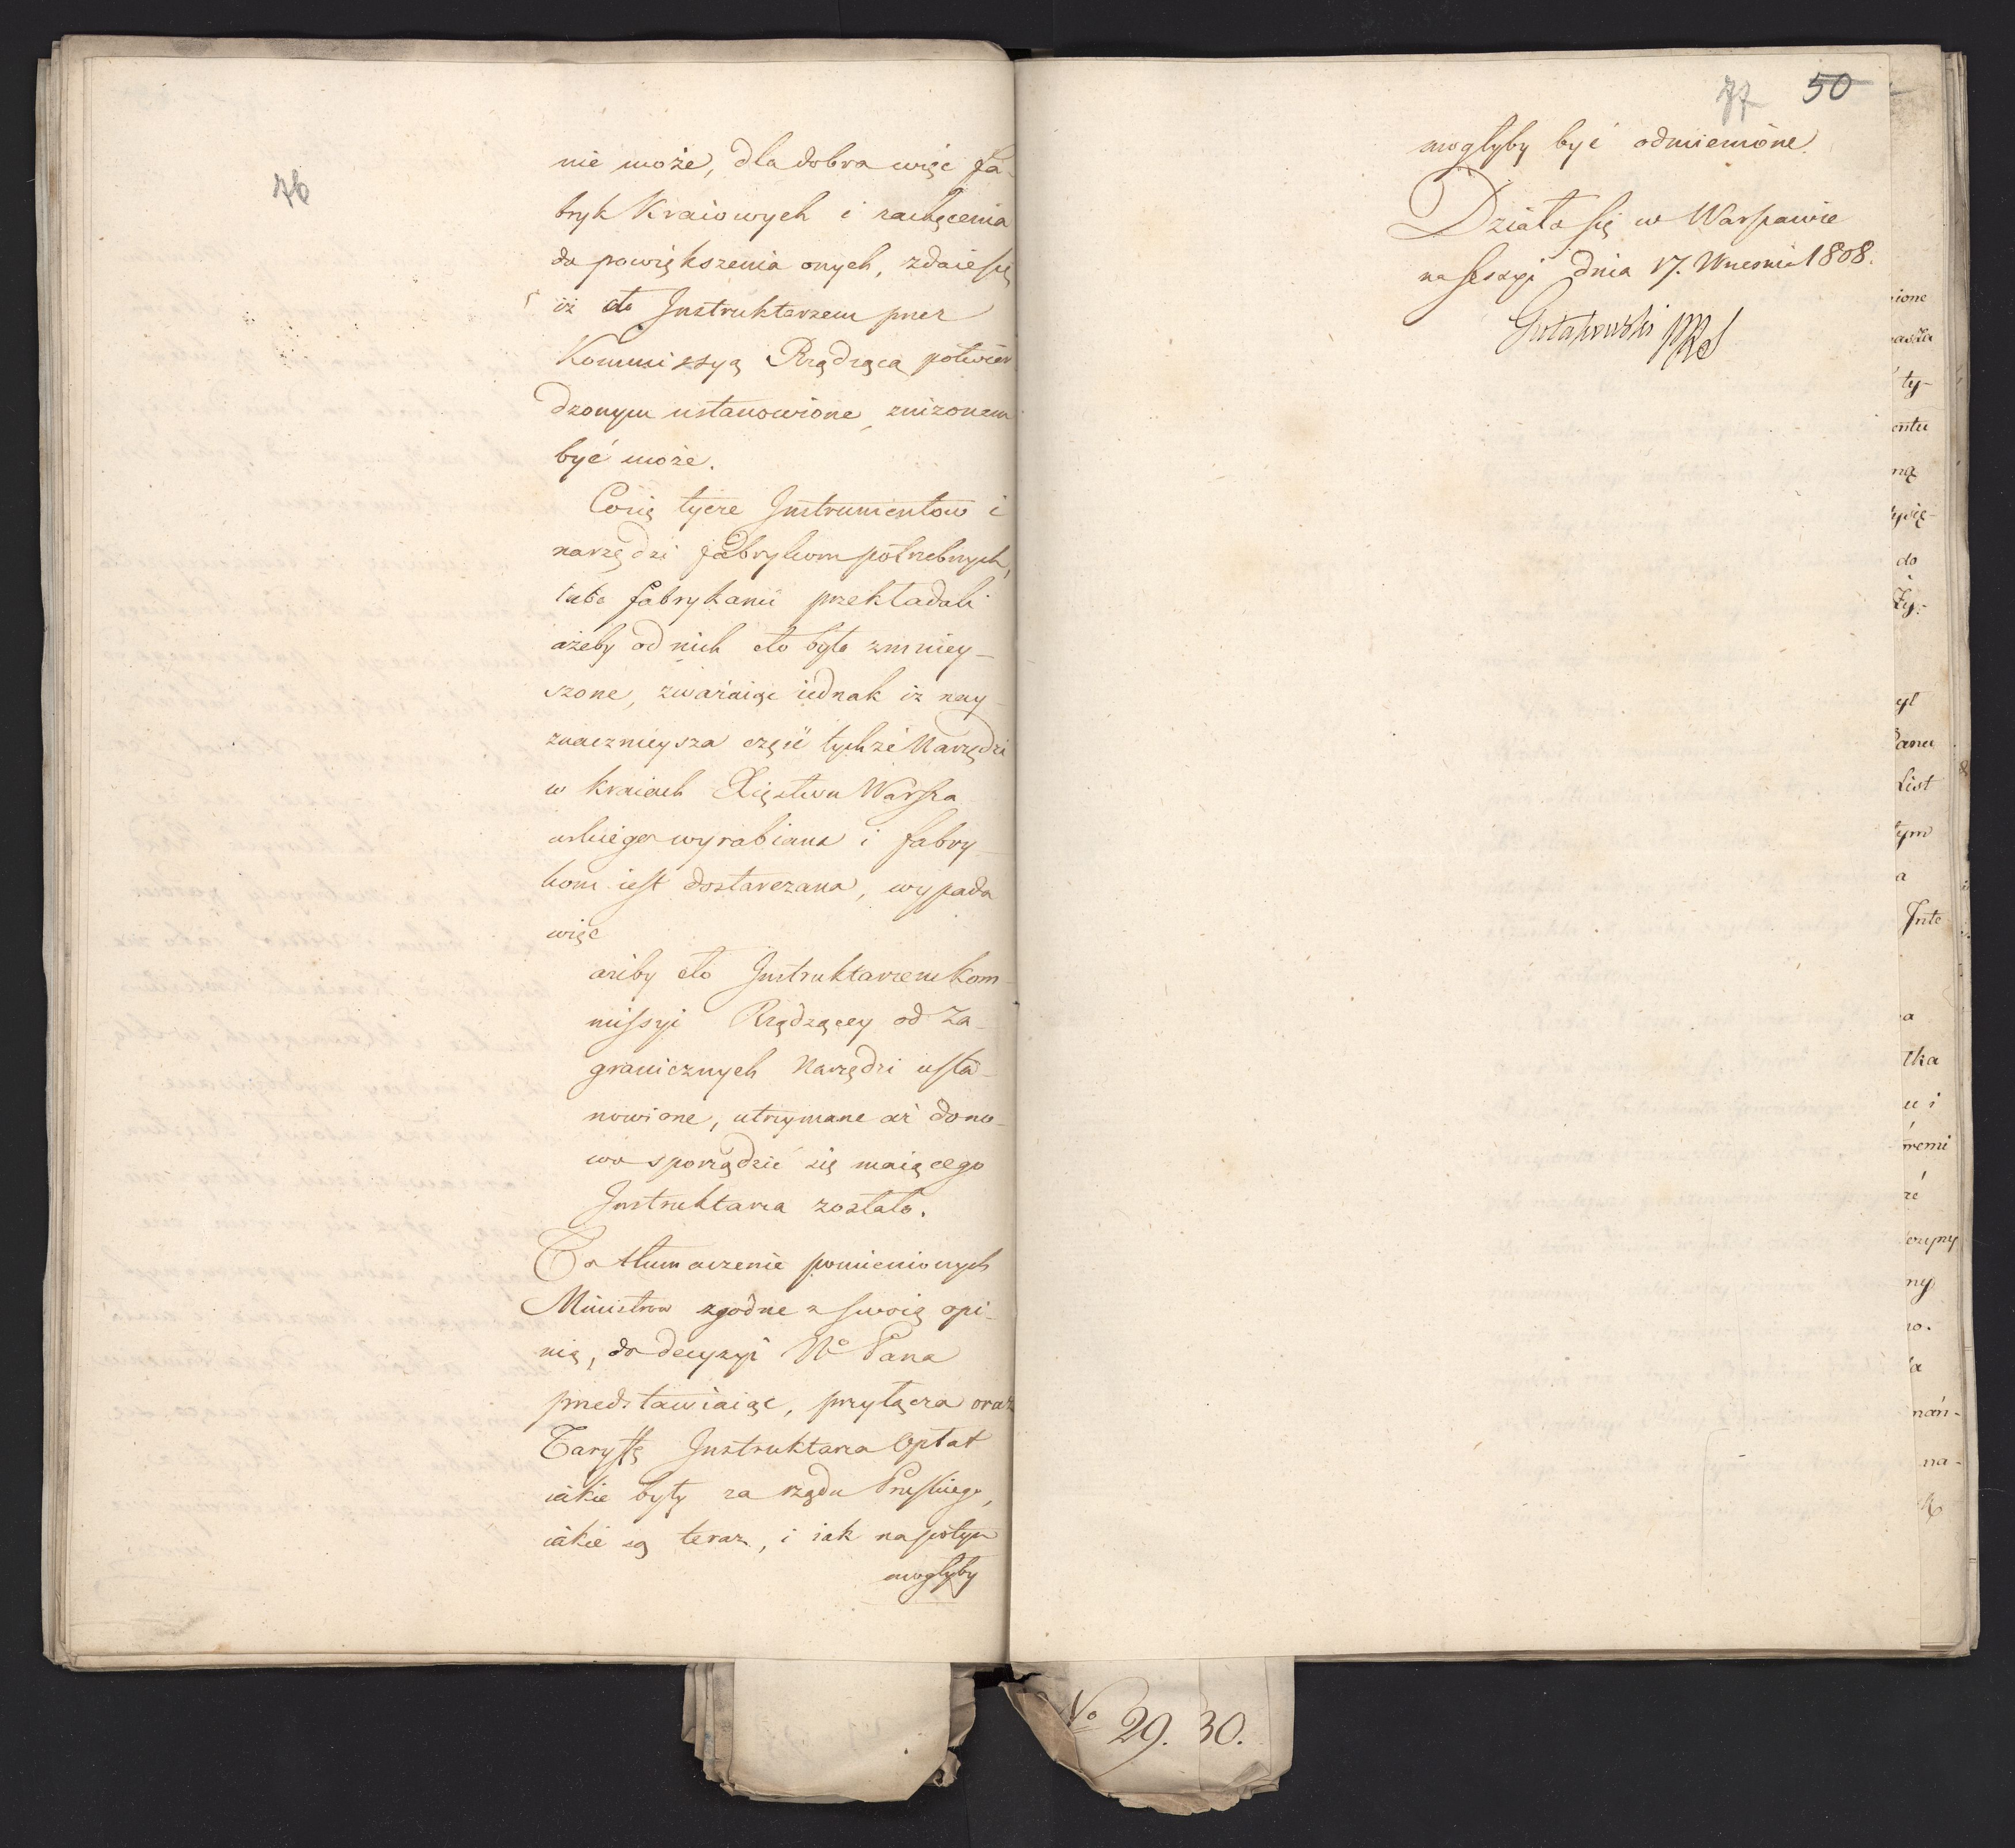 76
nie może, dla dobra więc Fa-
bryk Kraiowych i zachęcenia
do powiększenia onych, zdaie się
iż cło Instruktarzem przez
Kommissyą Rządzącą potwier
dzonym ustanowione, zniżonem
być może.
Cosię tycze Instrumentow i
narzędzi fabrykom potrzebnych,
lubo fabrykanci przekładali
ażeby od nich cło było zmniey-
szone, zważaiąc iednak iż nay-
znacznieysza część tychże Narzędzi
w kraiach Xięstwa Warsza
wskiego wyrabiana i fabry-
kom iest dostarczana, wypada
więc
ażeby cło Instruktarzem Kom-
missyi Rządzącey od Za-
granicznych Narzędzi usta-
nowione, utrzymane aż do no-
wo sporządzić się maiącego
Instruktarza zostało.
To tłumaczenie pomienionych
Ministrow zgodne z swoią opi-
nią, do decyzyi Wo Pana
przedstawiaiąc, przyłącza oraz
Taryffę Instruktarza Opłat
iakie były za rządu Pruskiego,
iakie są teraz, i iak napotym
mogłyby
77 50
mogłyby być odmienione.
Działo się w Warszawie
na Sessyi dnia 17. Wrzesnia 1808.
Gutakowski PRS
ione
ty-
entu
ną
do
yl
Panu
List
tym
a
Inte
a
tka
u i
remi
że
czyny
ny
no.
ła
nań-
na-
No 29. 30.